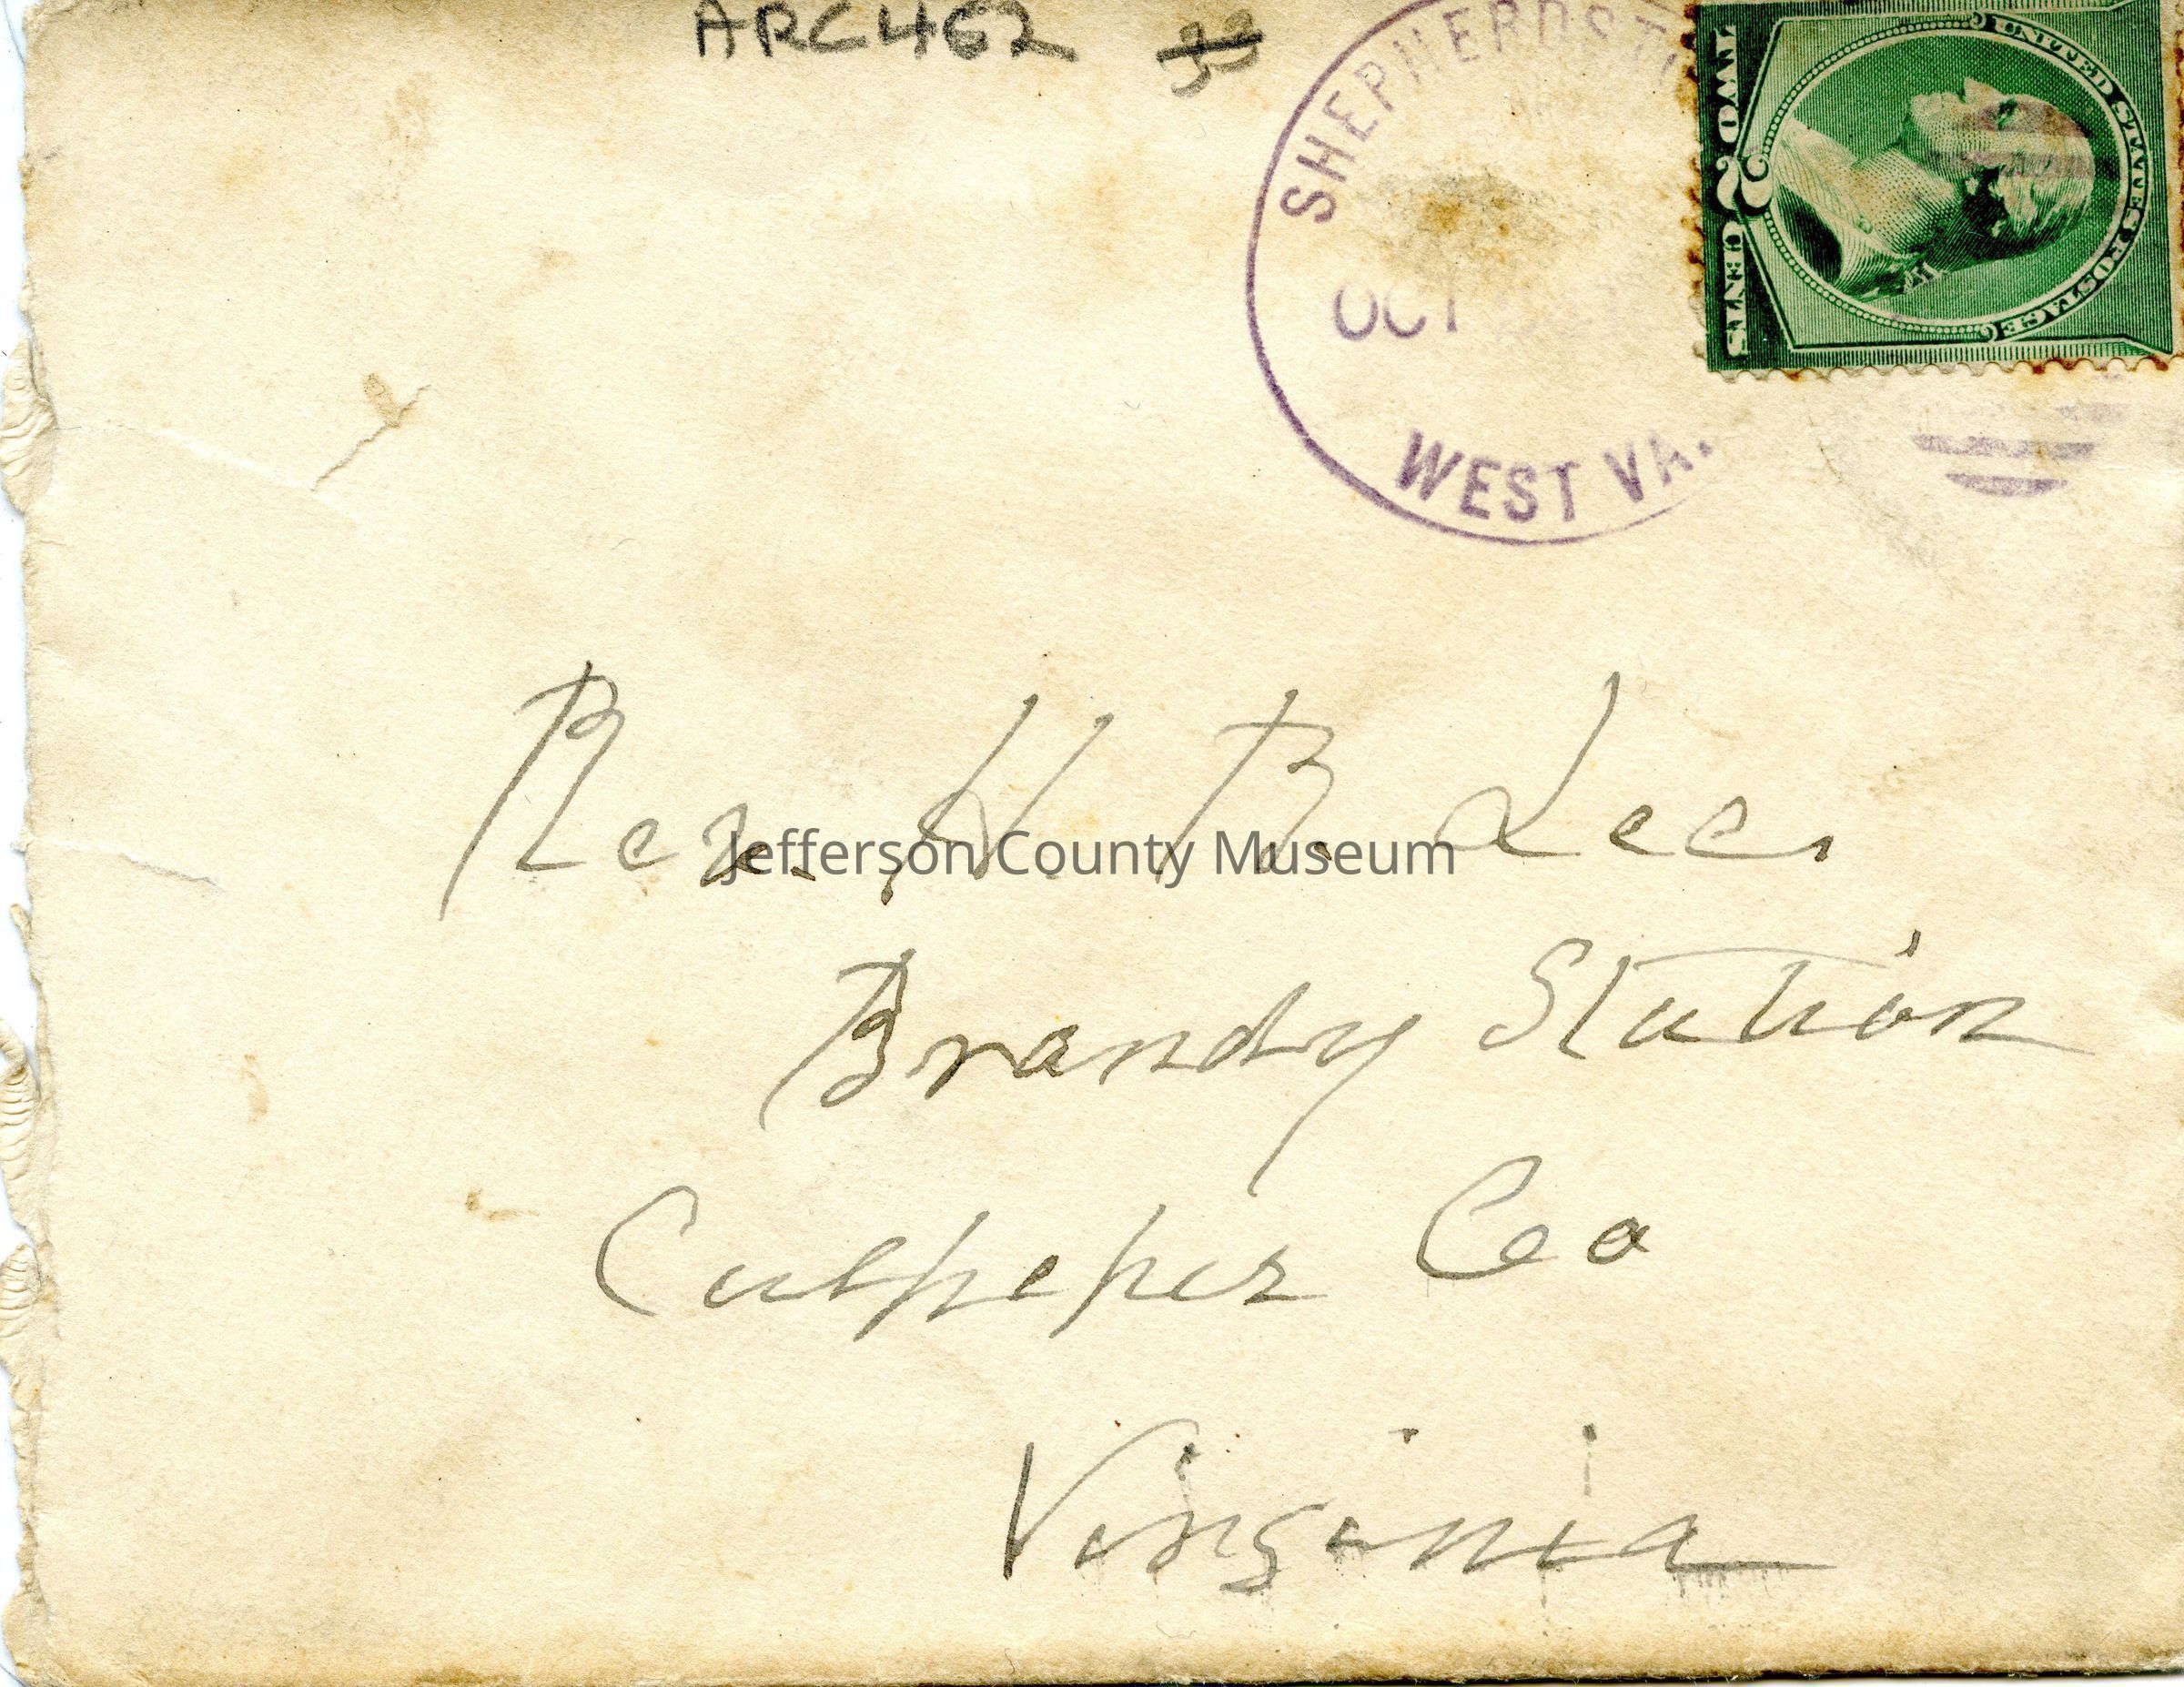 ARCH62
SHEPHERDST
OCT
WEST VA.
UNITED STATES POSTAGE
TWO 2 CENTS
Rev. H B. Lee,
Jefferson County Museum
Brandy Station
Culpeper Co
Virginia